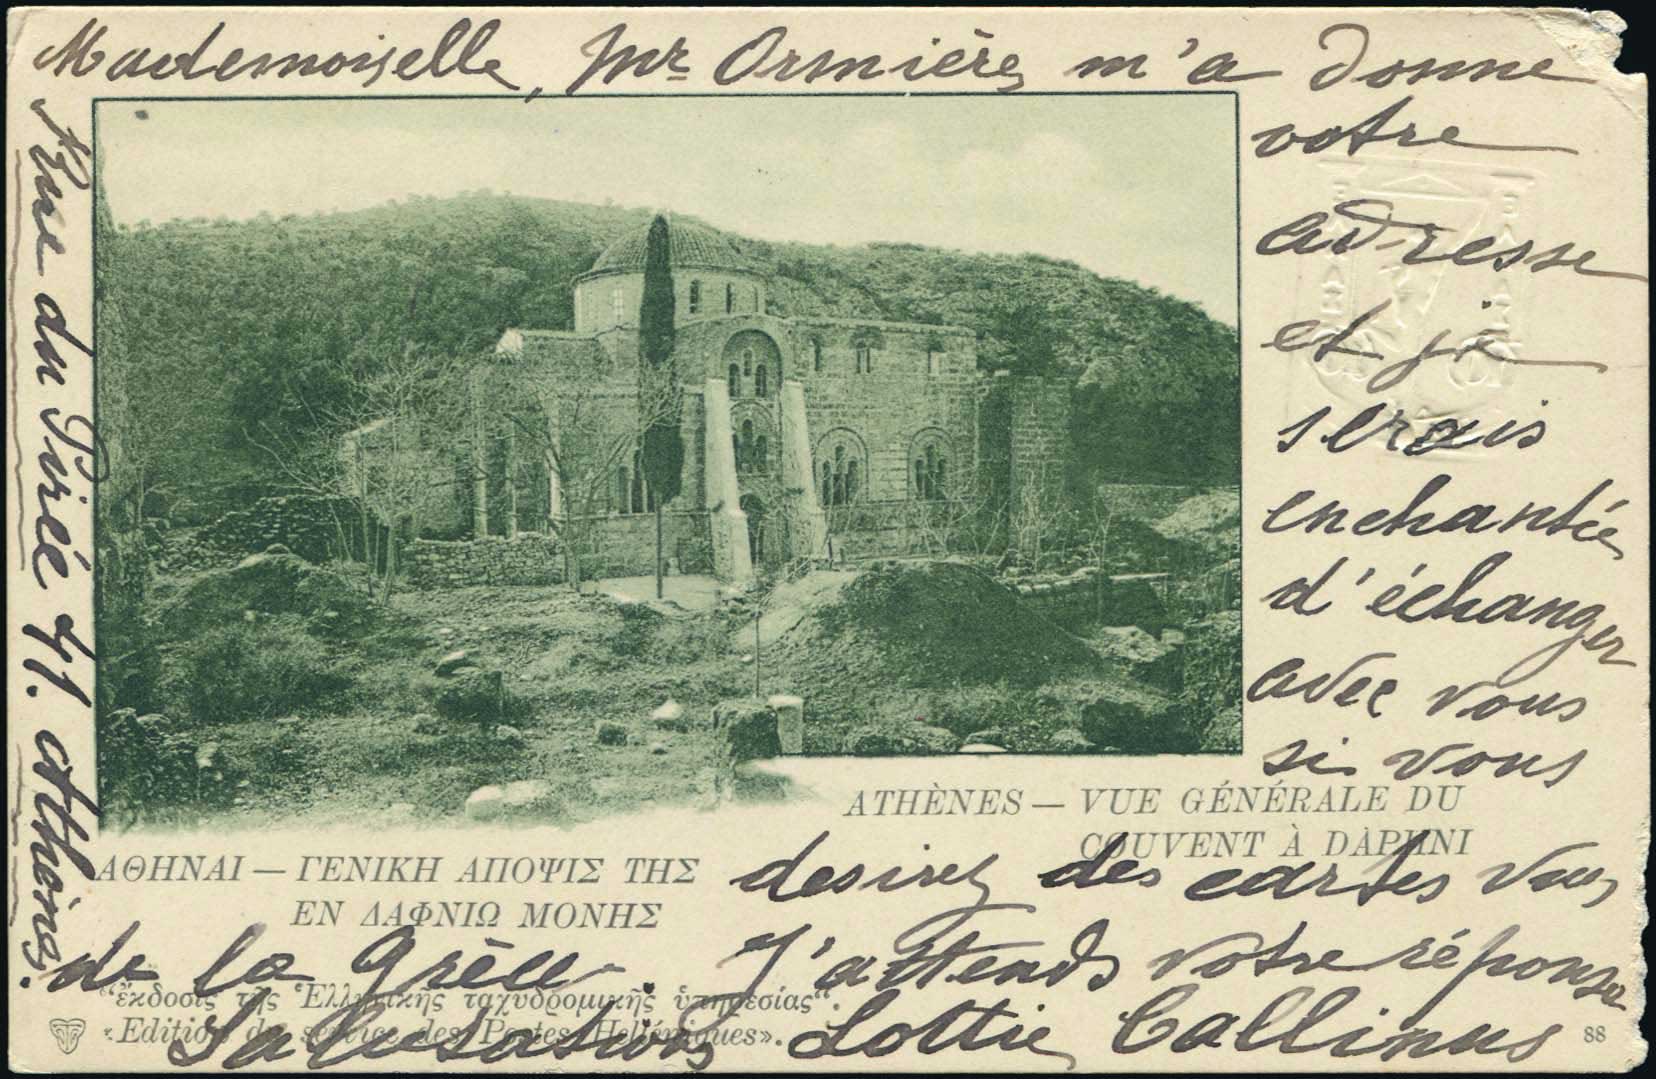 Mademoiselle, Mr Ormières m'a donne
votre
adresse
et je
serais
enchantée
d'échanger
avec vous
si vous
desirez des cartes vues
de la Grèce. J'attends votre réponse
Salutations Lottie Callinus
Rue du Pirée 41. Athènes.
ATHÈNES — VUE GÉNÉRALE DU
COUVENT À DAPHNI
ΑΘΗΝΑΙ — ΓΕΝΙΚΗ ΑΠΟΨΙΣ ΤΗΣ
ΕΝ ΔΑΦΝΙΩ ΜΟΝΗΣ
"ἔκδοσις τῆς Ἑλληνικῆς ταχυδρομικῆς ὑπηρεσίας".
«Edition du service des Postes Helléniques».
88